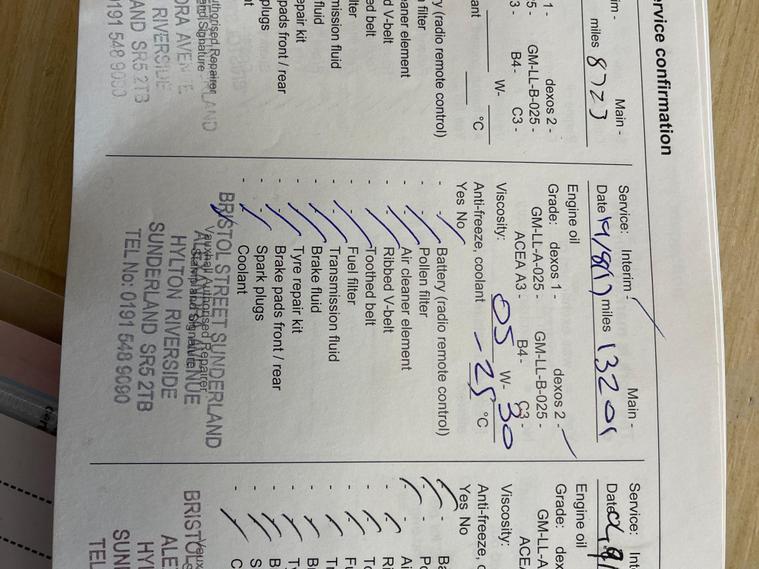 ervice confirmation
im - Main -
miles 8723
1 - dexos 2 -
5 - GM-LL-B-025 -
3 - B4- C3 -
W-
ant °C
y (radio remote control)
n filter
eaner element
d V-belt
ed belt
lter
mission fluid
fluid
epair kit
pads front / rear
plugs
nt
uthorised Repairer
nd Signature
RLAND
ORA AVENUE
RIVERSIDE
AND SR5 2TB
0191 548 9090
Service: Interim - Main -
Date 14/8/17 miles 13201
Engine oil
Grade: dexos 1 - dexos 2 -
GM-LL-A-025 - GM-LL-B-025 -
ACEA A3 - B4- C3 -
Viscosity: 05 W- 30
Anti-freeze, coolant -25 °C
Yes No
- - Battery (radio remote control)
- - Pollen filter
- - Air cleaner element
- - Ribbed V-belt
- - Toothed belt
- - Fuel filter
- - Transmission fluid
- - Brake fluid
- - Tyre repair kit
- - Brake pads front / rear
- - Spark plugs
- - Coolant
Vauxhall Authorised Repairer
Stamp and Signature
BRISTOL STREET SUNDERLAND
HYLTON RIVERSIDE
SUNDERLAND SR5 2TB
TEL No: 0191 548 9090
Service: Int
Date
Engine oil
Grade: dex
GM-LL-A
ACEA
Viscosity:
Anti-freeze, c
Yes No
- - Ba
- - Po
- - Ai
- - Ri
- - To
- - Fu
- - Tr
- - Br
- - Ty
- - B
- - S
- - C
Vaux
BRISTOL
ALE
HYL
SUN
TEL